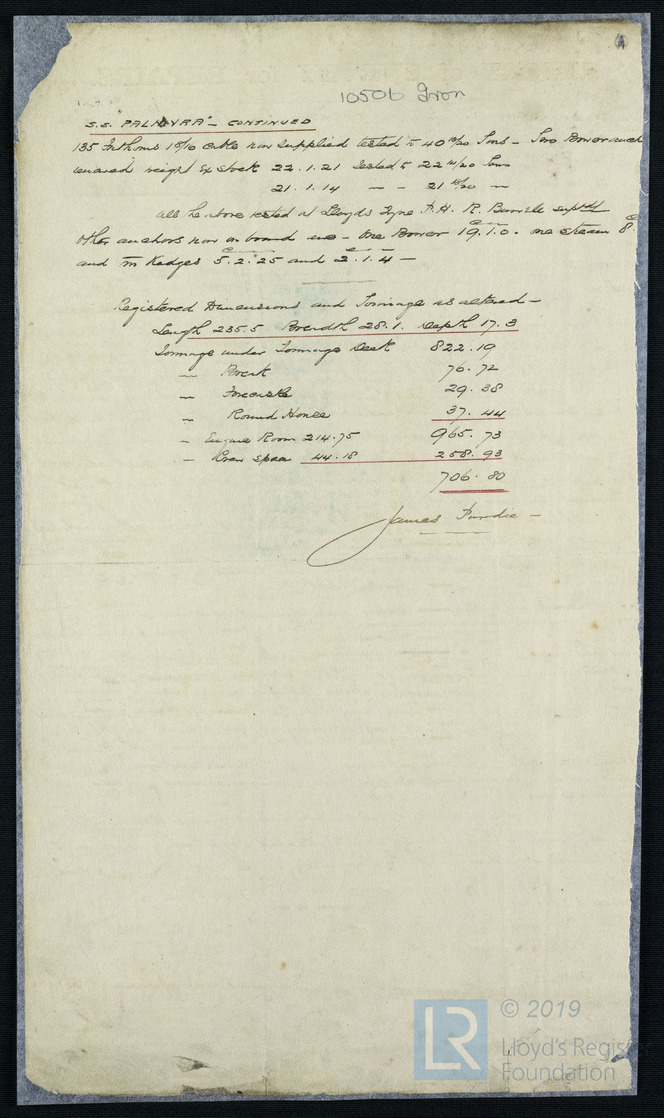 10506 Iron
S.S. "PALMYRA" - CONTINUED
135 Fathoms 1 5/10 cable now supplied tested to 40 10/20 Tons - Two Bower anch
weight Ex Stock 22.1.21 tested to 22 11/20 tons
21.1.14 - - 21 /20 -
All the above tested at Lloyds Tyne P.H. R. supdt
Other anchors now on board are - One Bower 19.1.0 - one stream 8
and two Kedges 5.2.25 and 2.1.4 -
Registered Dimensions and Tonnage as altered -
Length 235.5 Breadth 28.1. Depth 17.3
Tonnage under Tonnage Deck 822.19
- Break 76.72
- Forecastle 29.38
- Round House 37.44
965.73
- Engine Room 214.75
- Crew space 44.18 258.93
706.80
James Purdie -
© 2019
LR
Lloyd's Regis
Foundation